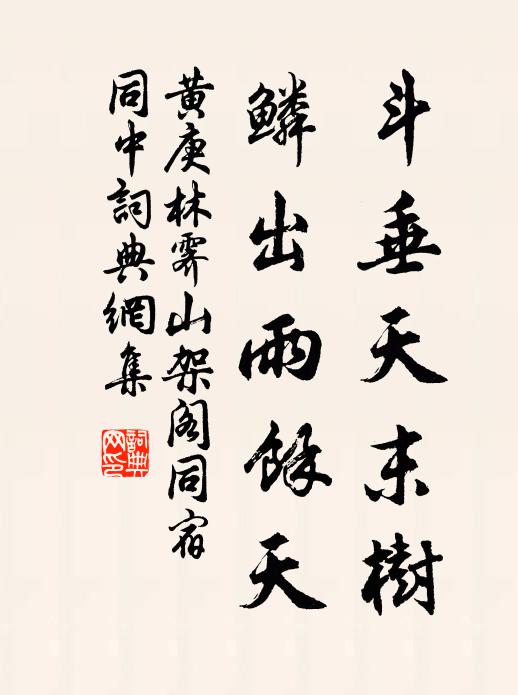 斗垂天末樹
鱗出雨餘天
黃庚林霽山架閣同宿
同中詞典網集
詞典网印